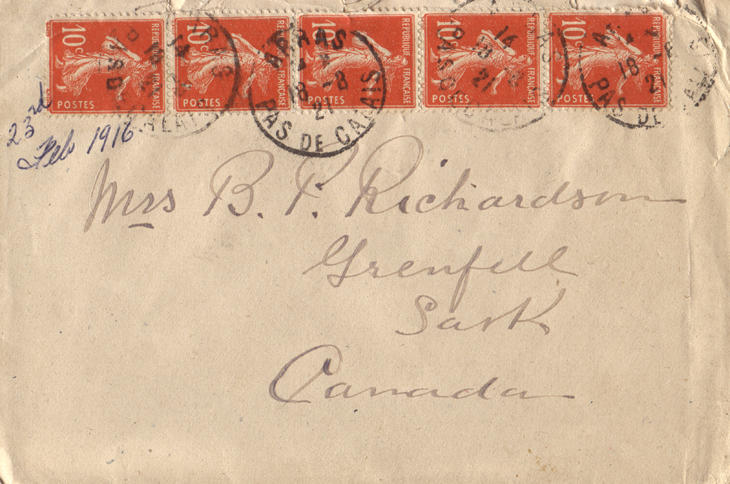 10c REPUBLIQUE FRANÇAISE POSTES
10c REPUBLIQUE FRANÇAISE POSTES
10c REPUBLIQUE FRANÇAISE POSTES
10c REPUBLIQUE FRANÇAISE POSTES
10c REPUBLIQUE FRANÇAISE POSTES
ARRAS
18 -8
21
PAS DE CALAIS
23rd
Feb 1916
Mrs B. P. Richardson
Grenfell
Sask
Canada